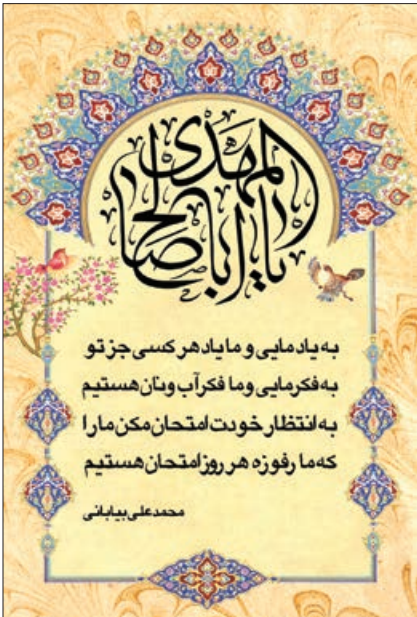 یا اباصالح المهدی
به یاد مایی و ما یاد هر کسی جز تو
به فکر مایی و ما فکر آب و نان هستیم
به انتظار خودت امتحان مکن ما را
که ما رفوزه هر روز امتحان هستیم
محمدعلی بیابانی